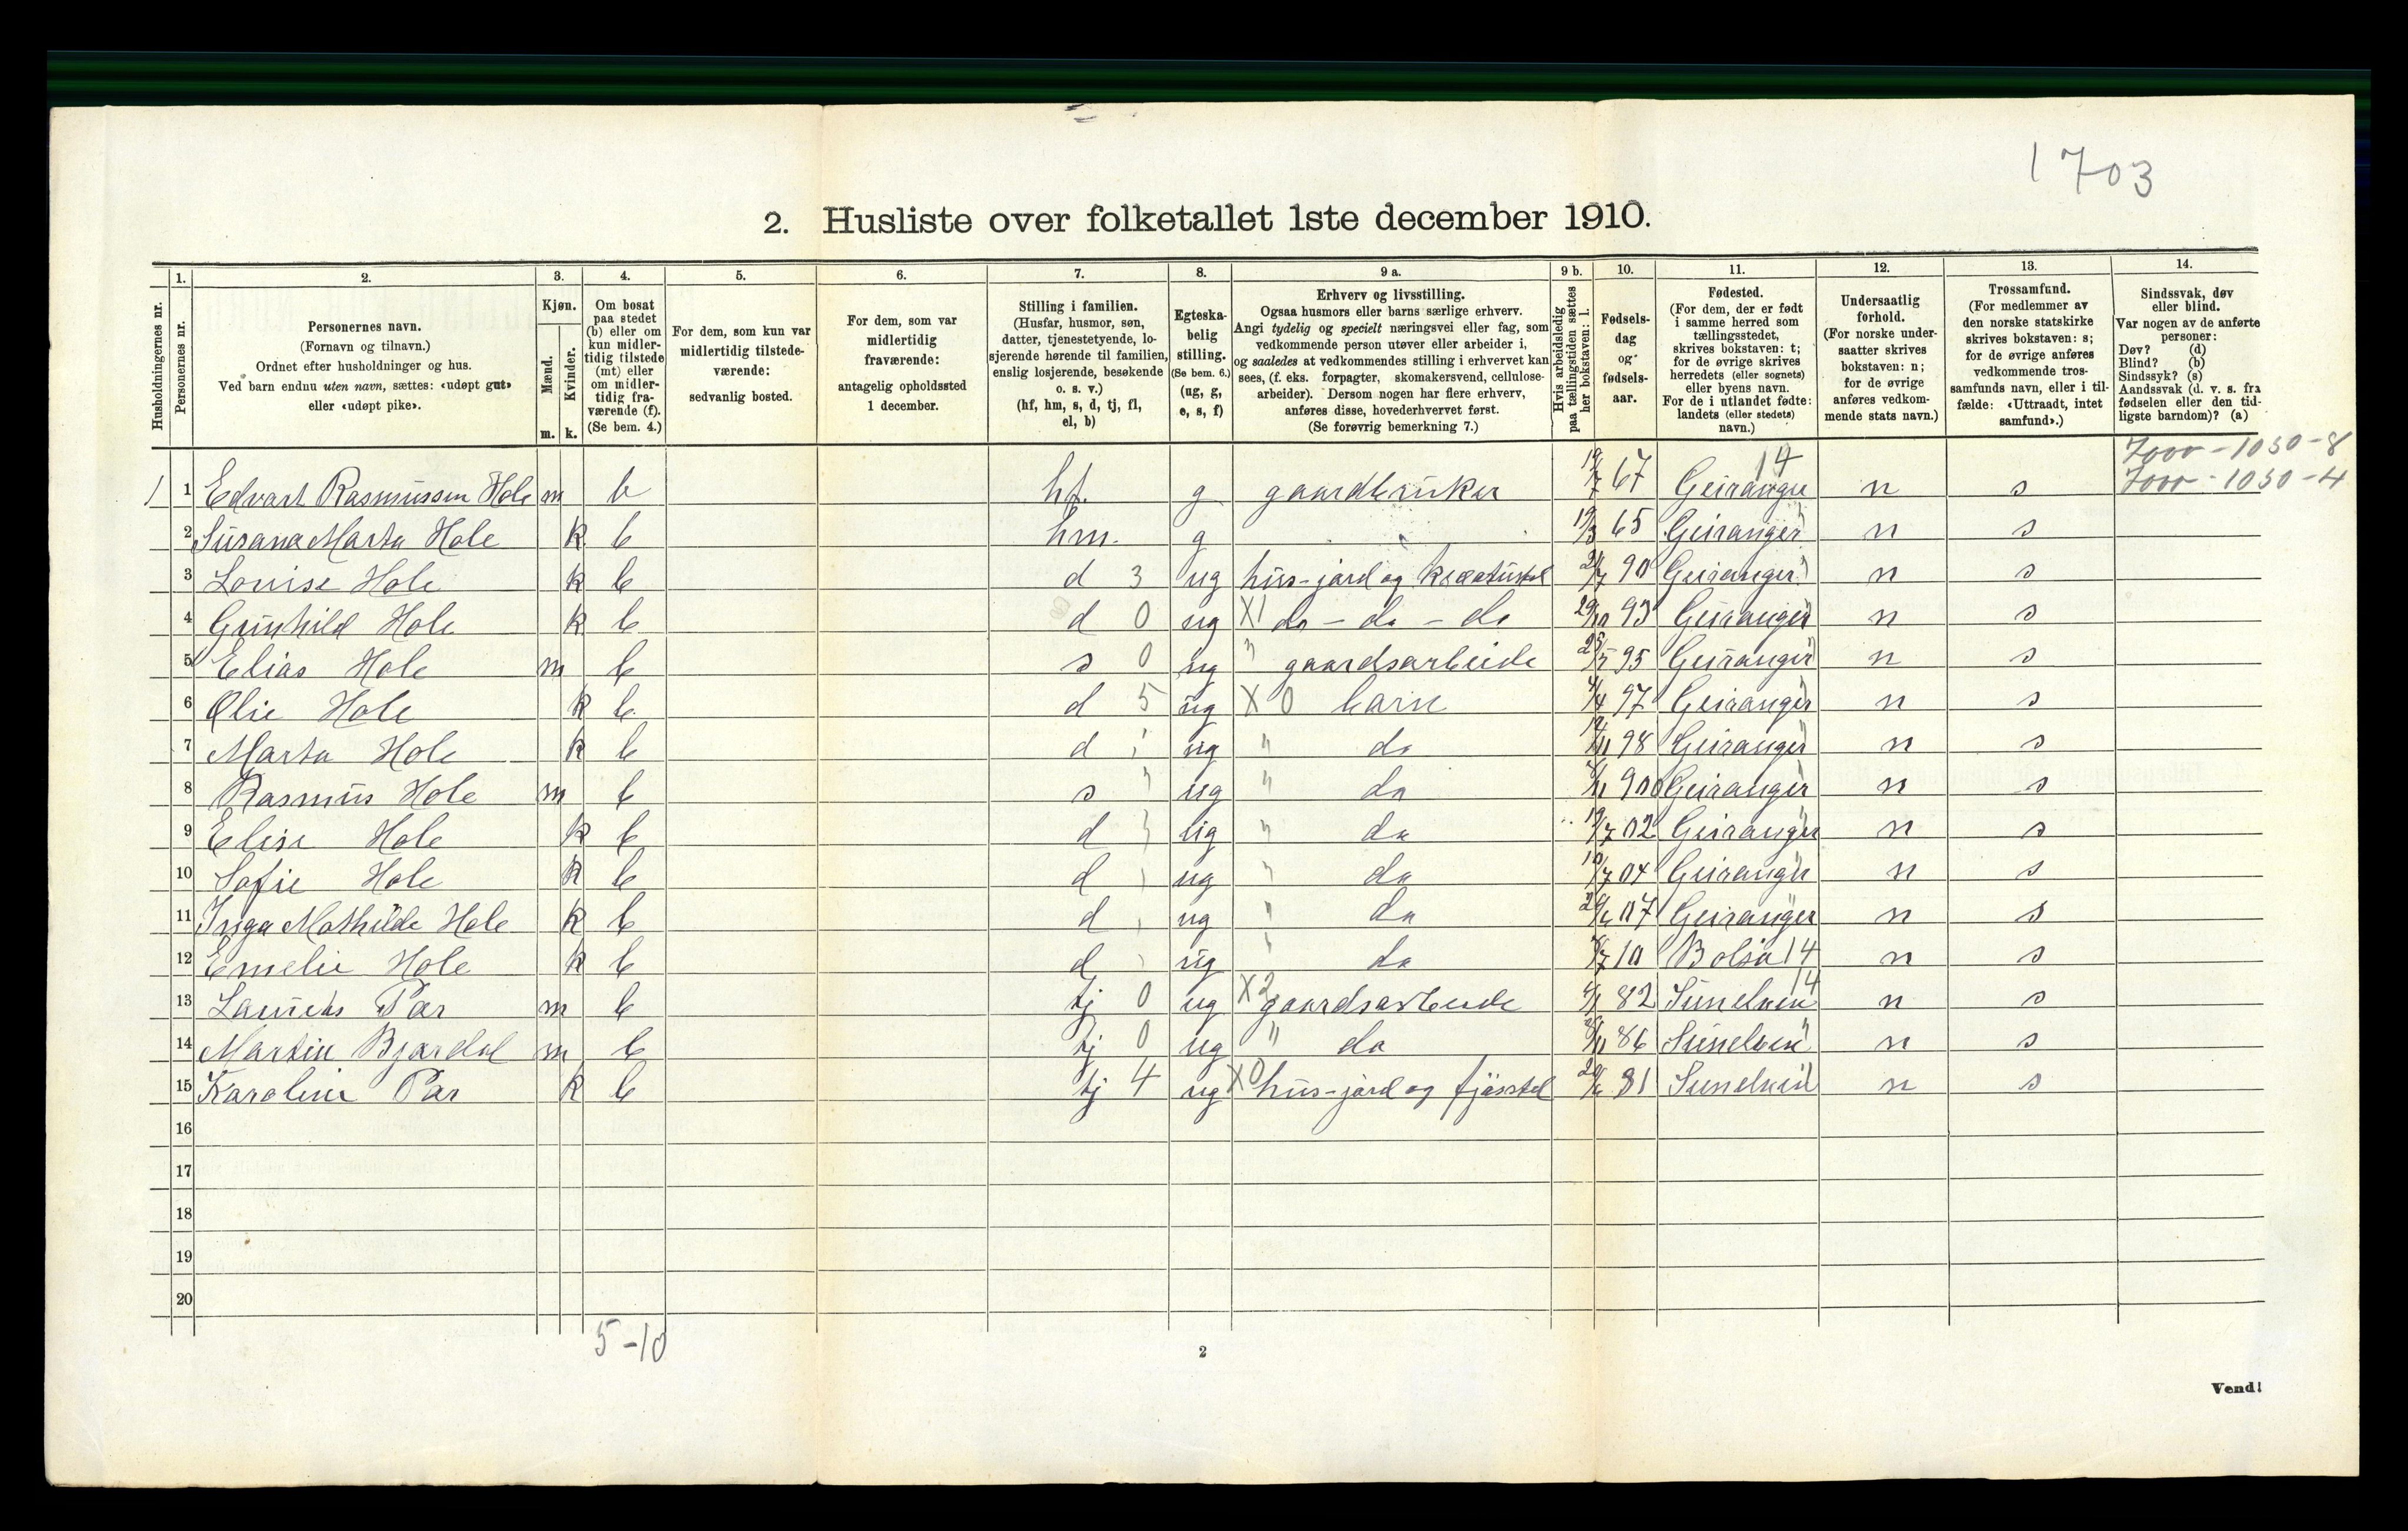 1703
2. Husliste over folketallet 1ste december 1910.
Husholdningernes nr.
1.
Personernes nr.
2.
Personernes navn.
(Fornavn og tilnavn.)
Ordnet efter husholdninger og hus.
Ved barn endnu uten navn, sættes: «udøpt gut»
eller «udøpt pike».
3.
Kjøn.
Mænd.
Kvinder.
m. k.
4.
Om bosat
paa stedet
(b) eller om
kun midler-
tidig tilstede
(mt) eller
om midler-
tidig fra-
værende (f).
(Se bem. 4.)
5.
For dem, som kun var
midlertidig tilstede-
værende:
sedvanlig bosted.
6.
For dem, som var
midlertidig
fraværende:
antagelig opholdssted
1 december.
7.
Stilling i familien.
(Husfar, husmor, søn,
datter, tjenestetyende, lo-
sjerende hørende til familien,
enslig losjerende, besøkende
o. s. v.)
(hf, hm, s, d, tj, fl,
el, b)
8.
Egteska-
belig
stilling.
(Se bem. 6.)
(ug, g,
e, s, f)
9 a.
Erhverv og livsstilling.
Ogsaa husmors eller barns særlige erhverv.
Angi tydelig og specielt næringsvei eller fag, som
vedkommende person utøver eller arbeider i,
og saaledes at vedkommendes stilling i erhvervet kan
sees, (f. eks. forpagter, skomakersvend, cellulose-
arbeider). Dersom nogen har flere erhverv,
anføres disse, hovederhvervet først.
(Se forøvrig bemerkning 7.)
9 b.
Hvis arbeidsledig
paa tællingstiden sættes
her bokstaven: l.
10.
Fødsels-
dag
og
fødsels-
aar.
11.
Fødested.
(For dem, der er født
i samme herred som
tællingsstedet,
skrives bokstaven: t;
for de øvrige skrives
herredets (eller sognets)
eller byens navn.
For de i utlandet fødte:
landets (eller stedets)
navn.)
12.
Undersaatlig
forhold.
(For norske under-
saatter skrives
bokstaven: n;
for de øvrige
anføres vedkom-
mende stats navn.)
13.
Trossamfund.
(For medlemmer av
den norske statskirke
skrives bokstaven: s;
for de øvrige anføres
vedkommende tros-
samfunds navn, eller i til-
fælde: «Uttraadt, intet
samfund».)
14.
Sindssvak, døv
eller blind.
Var nogen av de anførte
personer:
Døv? (d)
Blind? (b)
Sindssyk? (s)
Aandssvak (d. v. s. fra
fødselen eller den tid-
ligste barndom)? (a)
7000 - 1050 - 8
14
1 1 Edvart Rasmussen Hole m b hf. g gaardbruker 19/7 67 Geiranger n s 7000 - 1050 - 4
2 Susana Marta Hole k b hm. g 19/3 65 Geiranger n s
3 Louise Hole k b d 3 ug hus-jord og 90 Geiranger n s
4 Gunhild Hole k b d 0 ug X1 do - do - do 29/10 93 Geiranger n s
5 Elias Hole m b s 0 ug " gaardsarbeide 95 Geiranger n s
6 Olie Hole k b d 5 ug X 0 barn 4/4 97 Geiranger n s
7 Marta Hole k b d " ug " do 98 Geiranger n s
8 Rasmus Hole m b s " ug " do 900 Geiranger n s
9 Elise Hole k b d " ug " do 19/7 02 Geiranger n s
10 Sofie Hole k b d " ug " do 10/7 04 Geiranger n s
11 Inga Mathilde Hole k b d " ug " do 07 Geiranger n s
12 Emelie Hole k b d " ug " do 10 Bolsø 14 n s
14
13 Laurits Par m b tj 0 ug X2 gaardsarbeide 82 Sunelven n s
14 Martin Bjørdal m b tj 0 ug " do 86 Sunelven n s
15 Karoline Par k b tj 4 ug X0 hus-jord og fjøsstel 81 Sunelven n s
16
17
18
19
20
5-10
2
Vend!